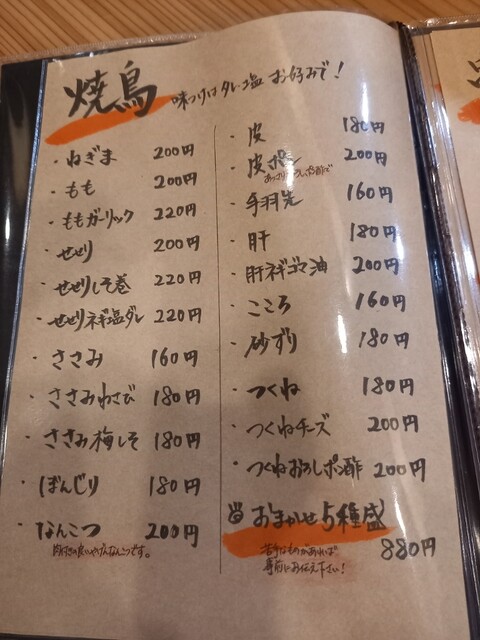 焼鳥 味つけは タレ・塩 お好みで！
・ねぎま 200円
・もも 200円
・ももガーリック 220円
・せせり 200円
・せせりしそ巻 220円
・せせりネギ塩ダレ 220円
・ささみ 160円
・ささみわさび 180円
・ささみ梅しそ 180円
・ぼんじり 180円
・なんこつ 200円
・皮 180円
・皮ポン 200円
・手羽先 160円
・肝 180円
・肝ネギゴマ油 200円
・こころ 160円
・砂ずり 180円
・つくね 180円
・つくねチーズ 200円
・つくねおろしポン酢 200円
おまかせ5種盛
880円
苦手なものがあれば
事前にお伝え下さい！